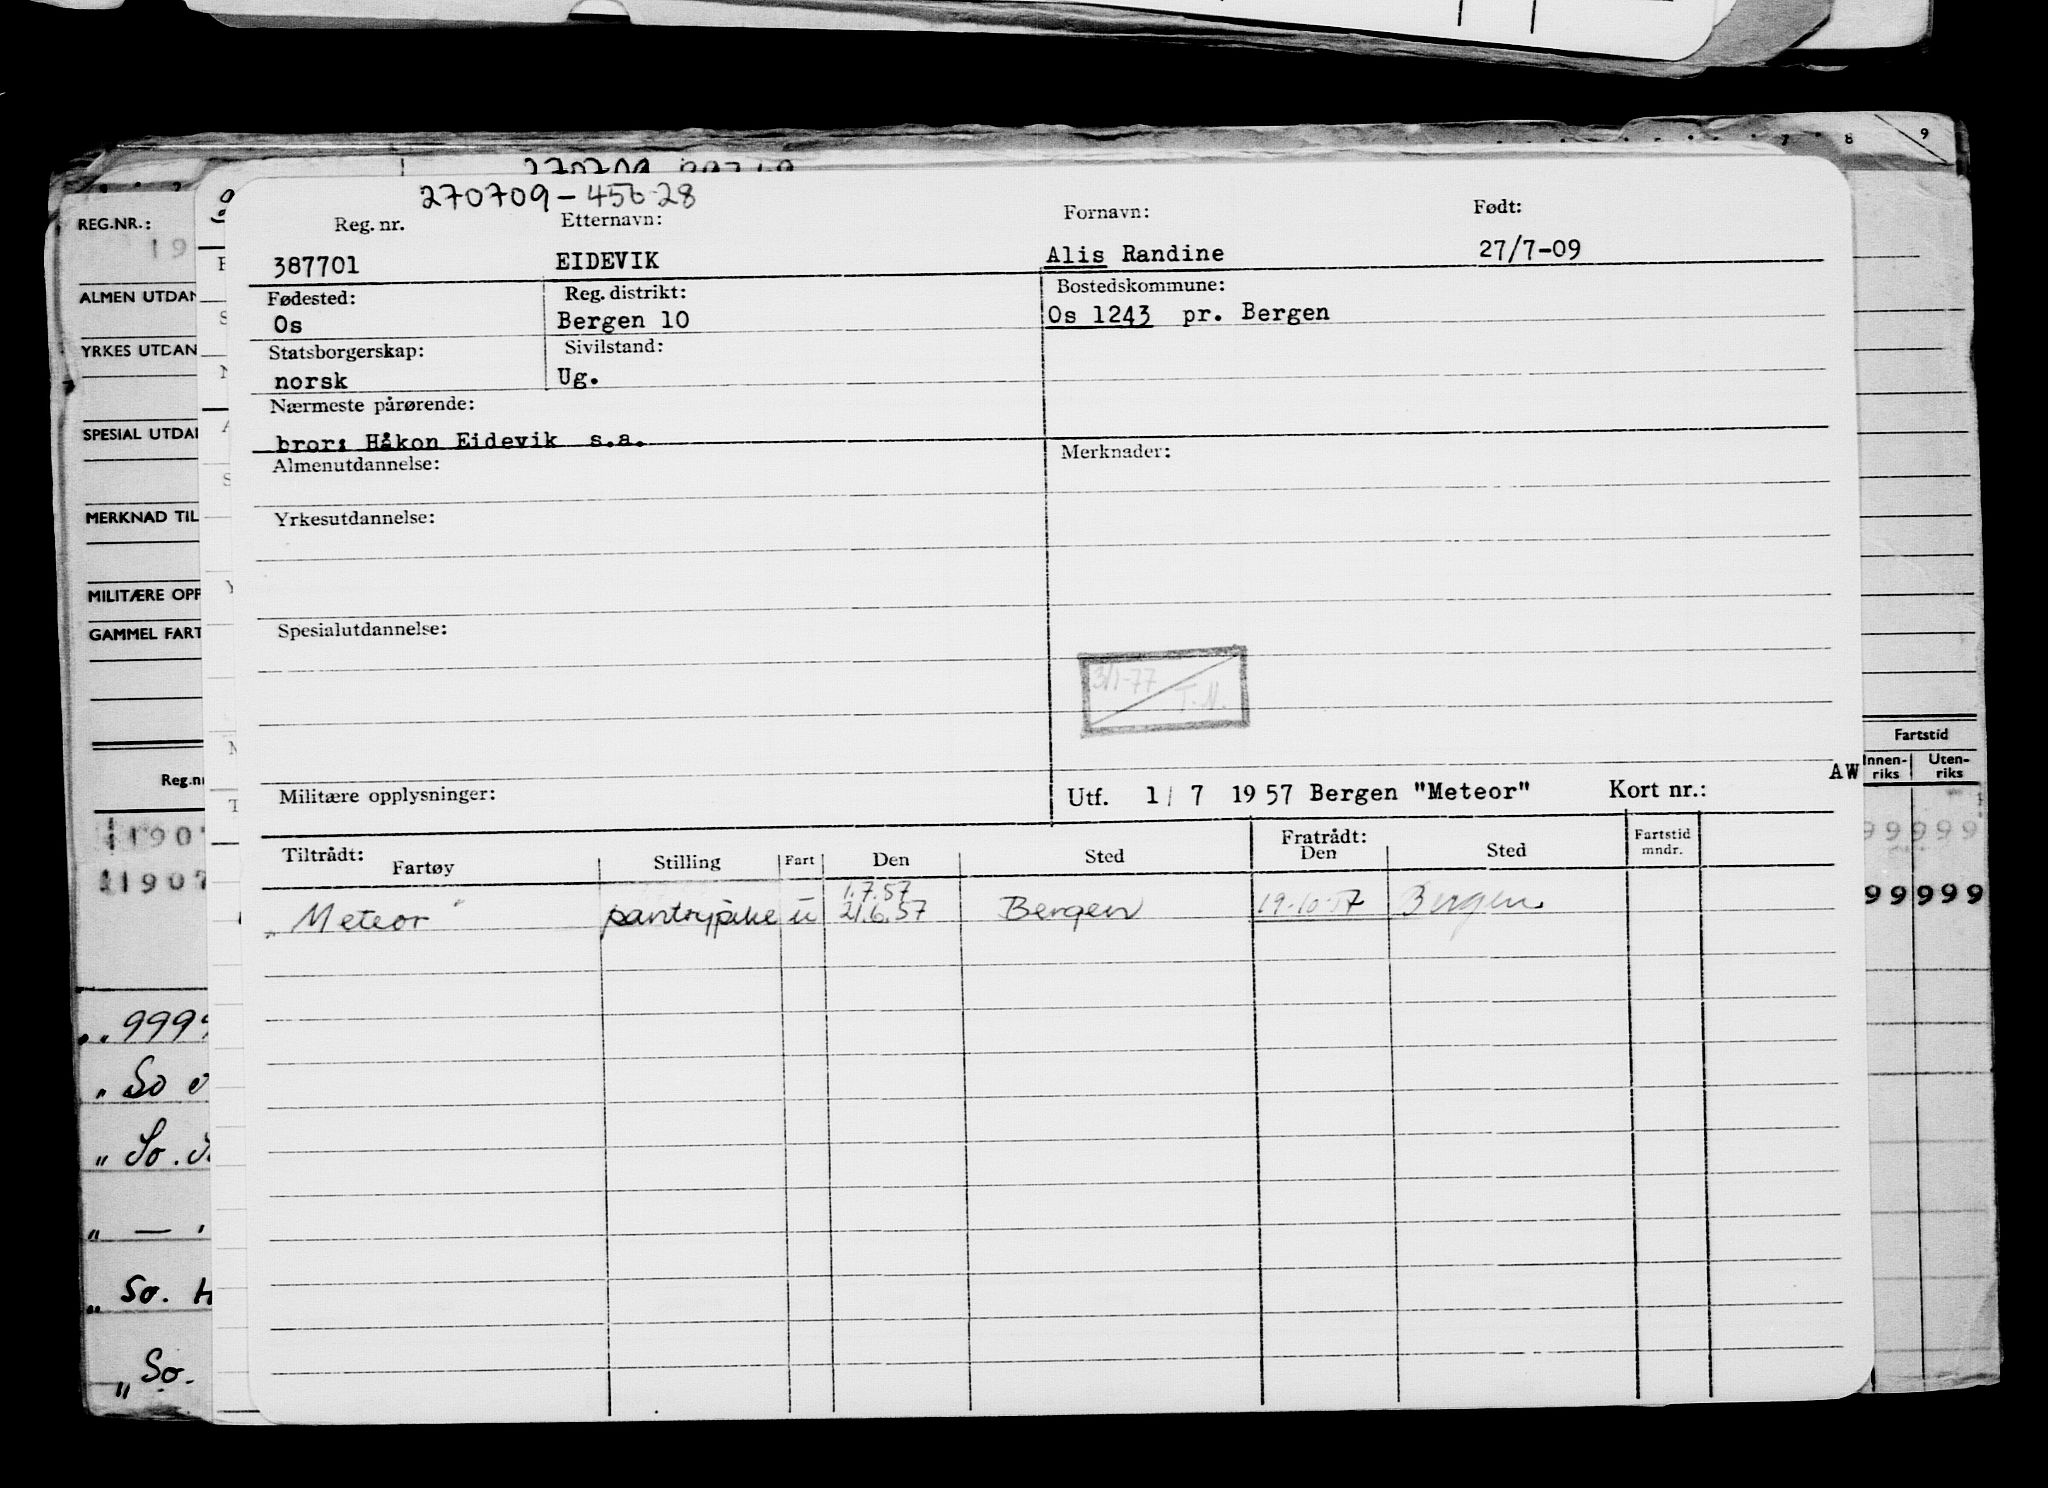 9
8
7
270709
270709-456 28
REG.NR.:
19
Reg. nr.
Etternavn:
Fornavn:
Født:
387701
EIDEVIK
Alis Randine
27/7-09
ALMEN UTDAN
Fødested:
Reg. distrikt:
Bostedskommune:
Os
Bergen 10
Os 1243 pr. Bergen
YRKES UTDAN
Statsborgerskap:
Sivilstand:
norsk
Ug.
Nærmeste pårørende:
SPESIAL UTDAN
bror: Håkon Eidevik s.a.
Almenutdannelse:
Merknader:
MERKNAD TIL
Yrkesutdannelse:
MILITÆRE OPP
GAMMEL FART
Spesialutdannelse:
3/1-77
T.M.
Fartstid
Innen-
riks
Uten-
riks
Reg.nr
AW
Militære opplysninger:
Utf. 1/ 7 1957 Bergen "Meteor"
Kort nr.:
1907
99999
Tiltrådt:
Fratrådt:
Fartøy
Stilling
Fart
Den
Sted
Den
Sted
Fartstid
mndr.
11907
99999
1.7.57
"Meteor"
pantrypike
u
21.6.57
Bergen
19-10-57
Bergen
" 9999
" So
" So.
" —
" So. H
" So.